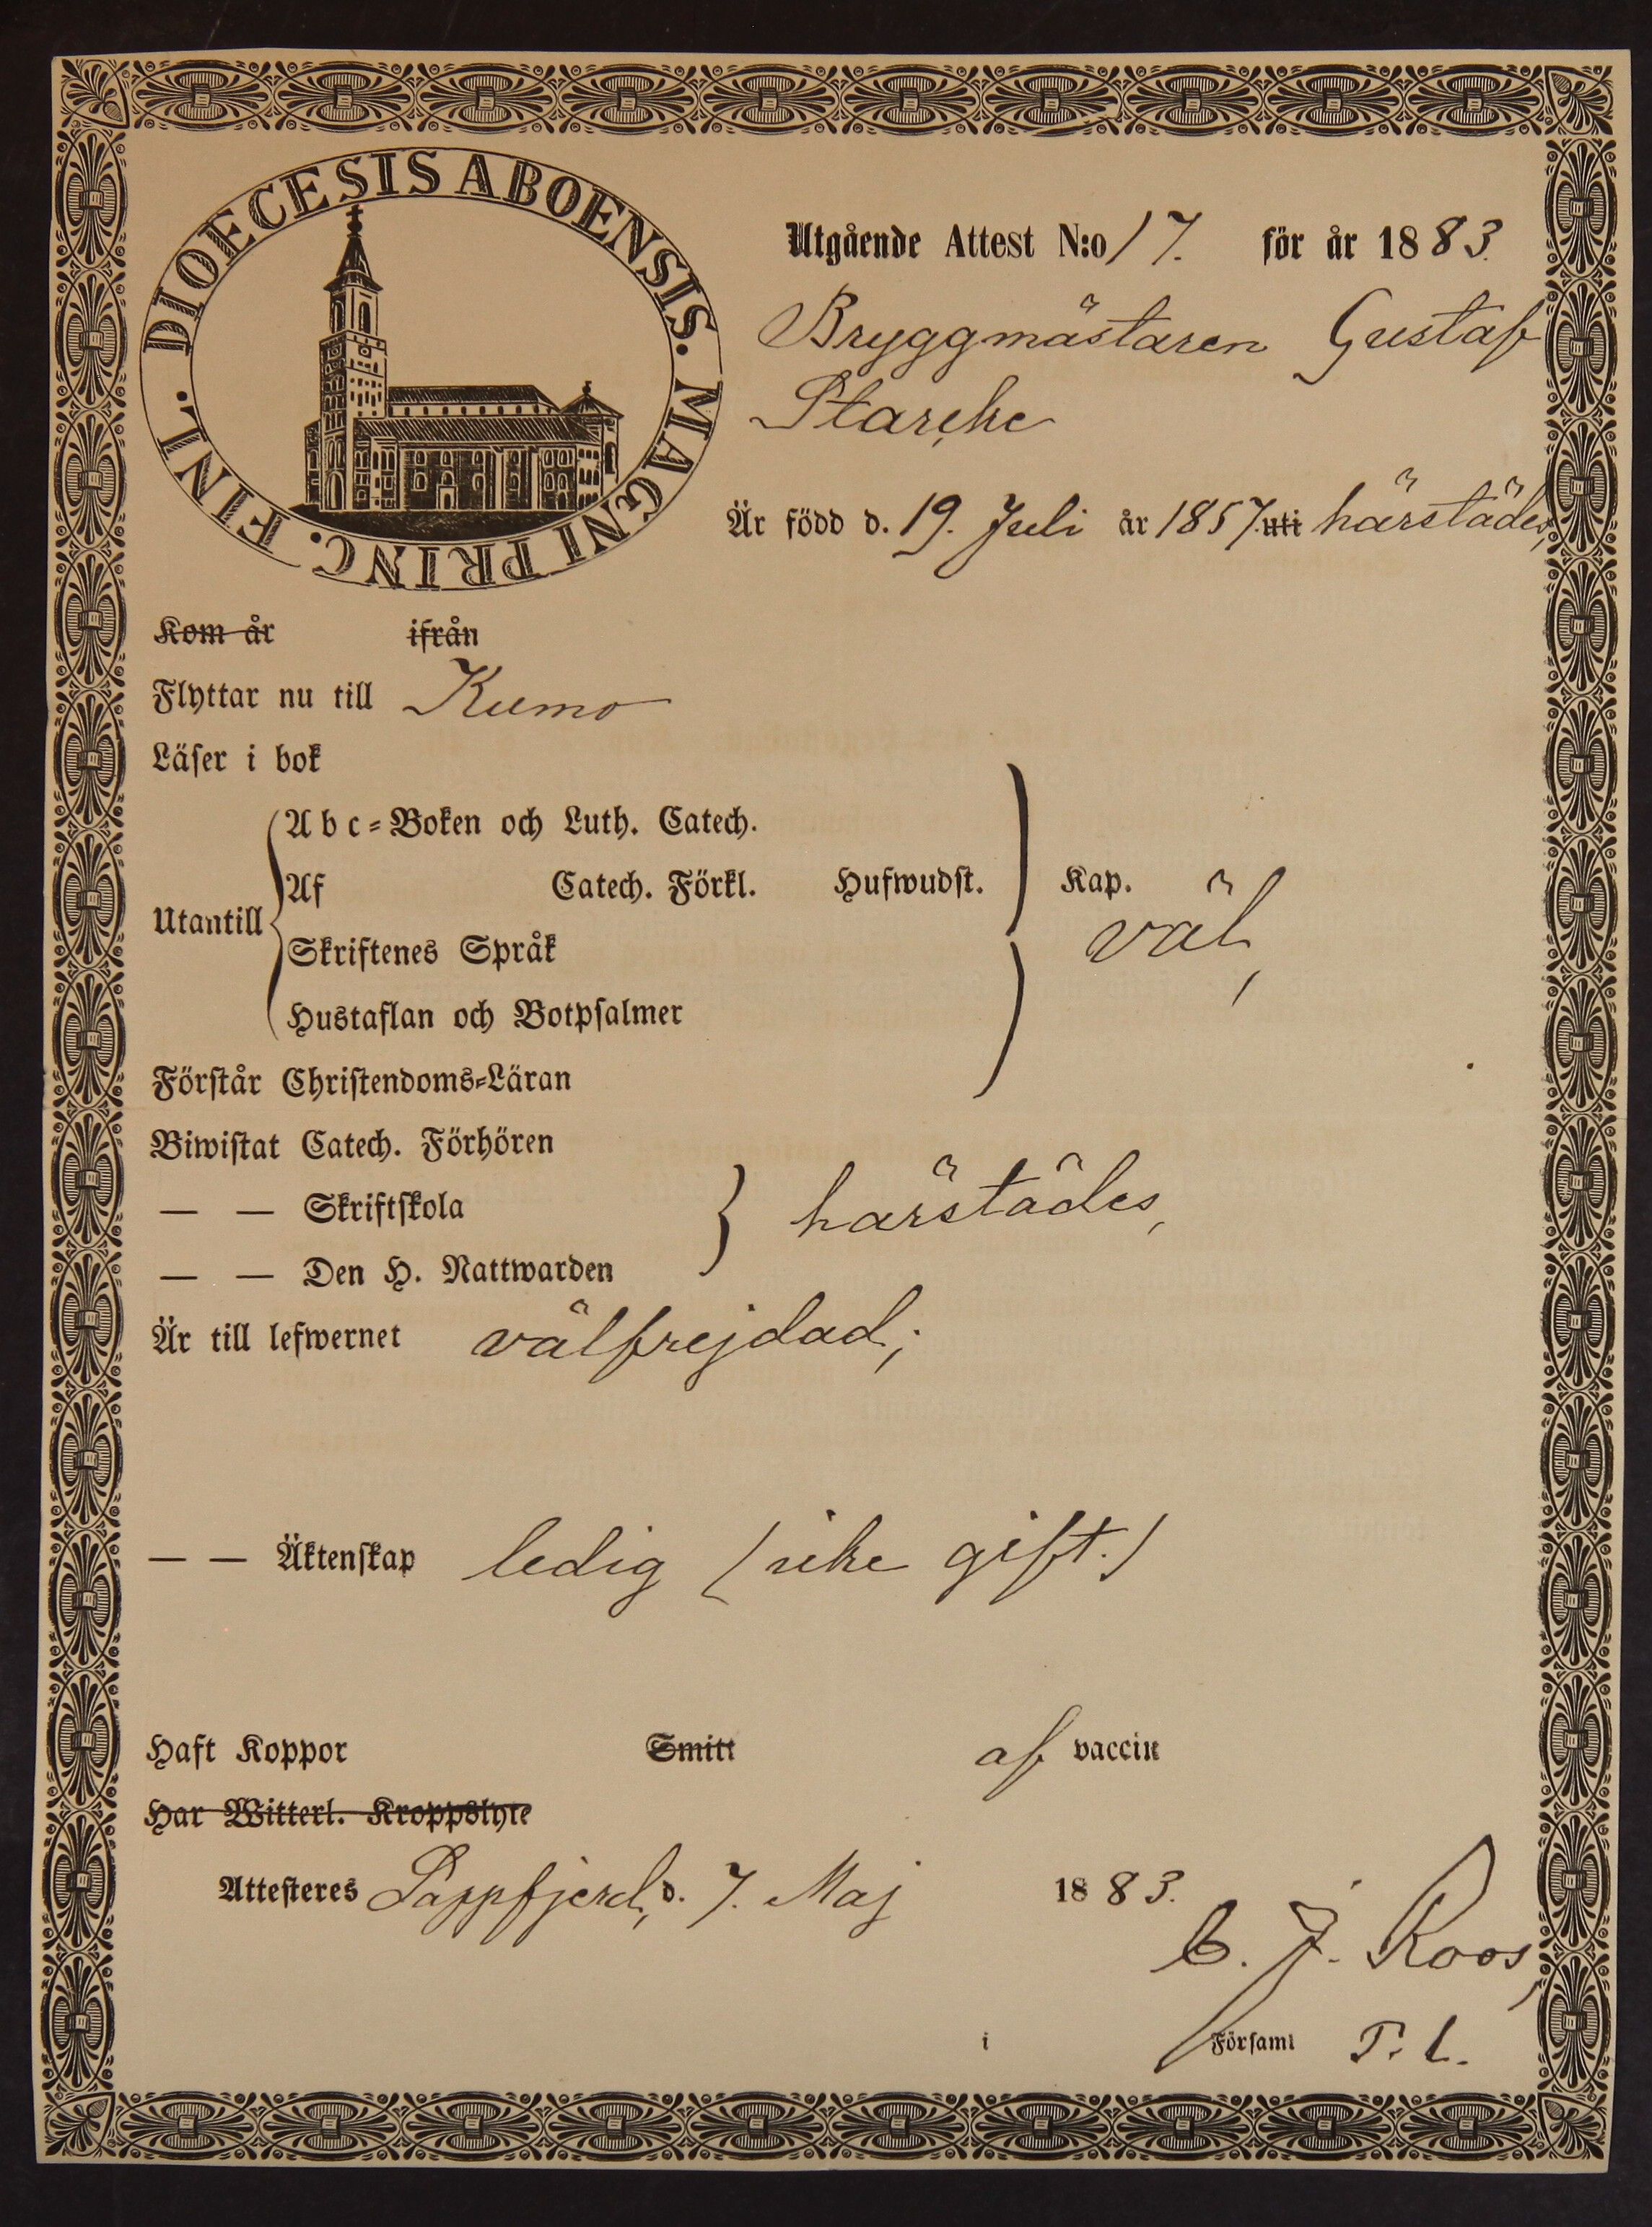 DIOECESIS ABOENSIS. MAGNI PRINC. FINL.
Utgående Attest N:o 17. för år 1883.
Bryggmästaren Gustaf
Starcke
Är född d. 19. Juli år 1857. uti härstädes,
Kom år ifrån
Flyttar nu till Kumo
Läser i bok
Abc-Boken och Luth. Catech.
Utantill
Af Catech. Förkl. Hufwudst. Kap.
väl,
Skriftenes Språk
Hustaflan och Botpsalmer
Förstår Christendoms-Läran
Biwistat Catech. Förhören
— — Skriftskola härstädes,
— — Den H. Nattwarden
Är till lefwernet välfrejdad;
— — Äktenskap ledig (icke gift.)
Haft Koppor Smitt af vaccin
Har Witterl. Kroppslyte
Attesteres Lappfjerd, d. 7. Maj 1883.
C. J. Roos,
i Församl